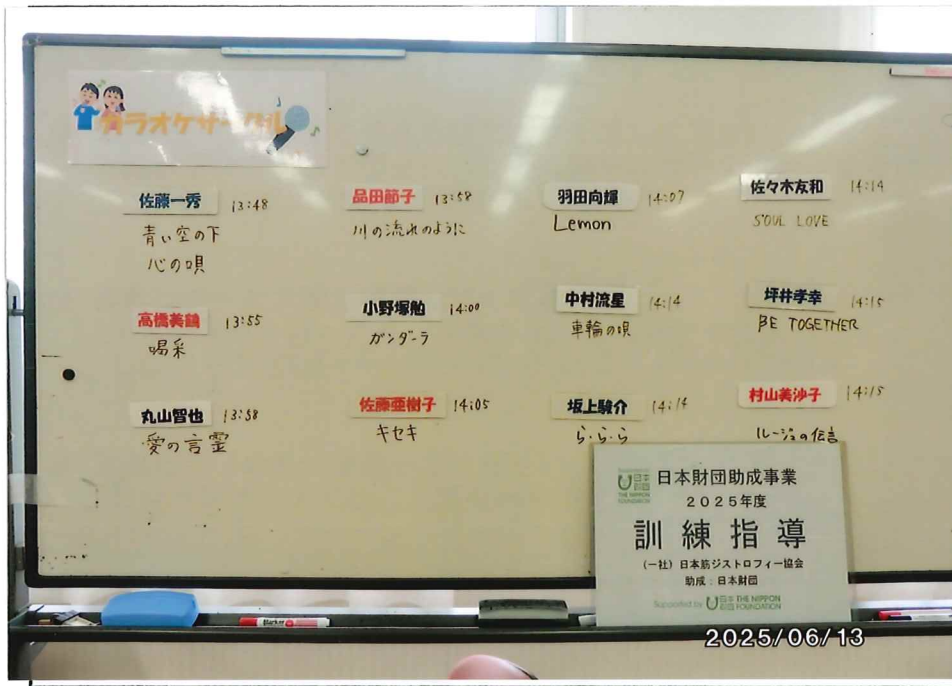 カラオケサークル
佐藤一秀 13:48
青い空の下
心の唄
高橋美鶴 13:55
喝采
丸山智也 13:58
愛の言霊
品田節子 13:58
川の流れのように
小野塚勉 14:00
ガンダーラ
佐藤亜樹子 14:05
キセキ
羽田向輝 14:07
Lemon
中村流星 14:14
車輪の唄
坂上駿介 14:14
ら・ら・ら
佐々木友和 14:14
SOUL LOVE
坪井孝幸 14:15
BE TOGETHER
村山美沙子 14:15
ルージュの伝言
日本財団助成事業
2025年度
訓練指導
(一社)日本筋ジストロフィー協会
助成:日本財団
Supported by 日本財団 THE NIPPON FOUNDATION
Marker
2025/06/13